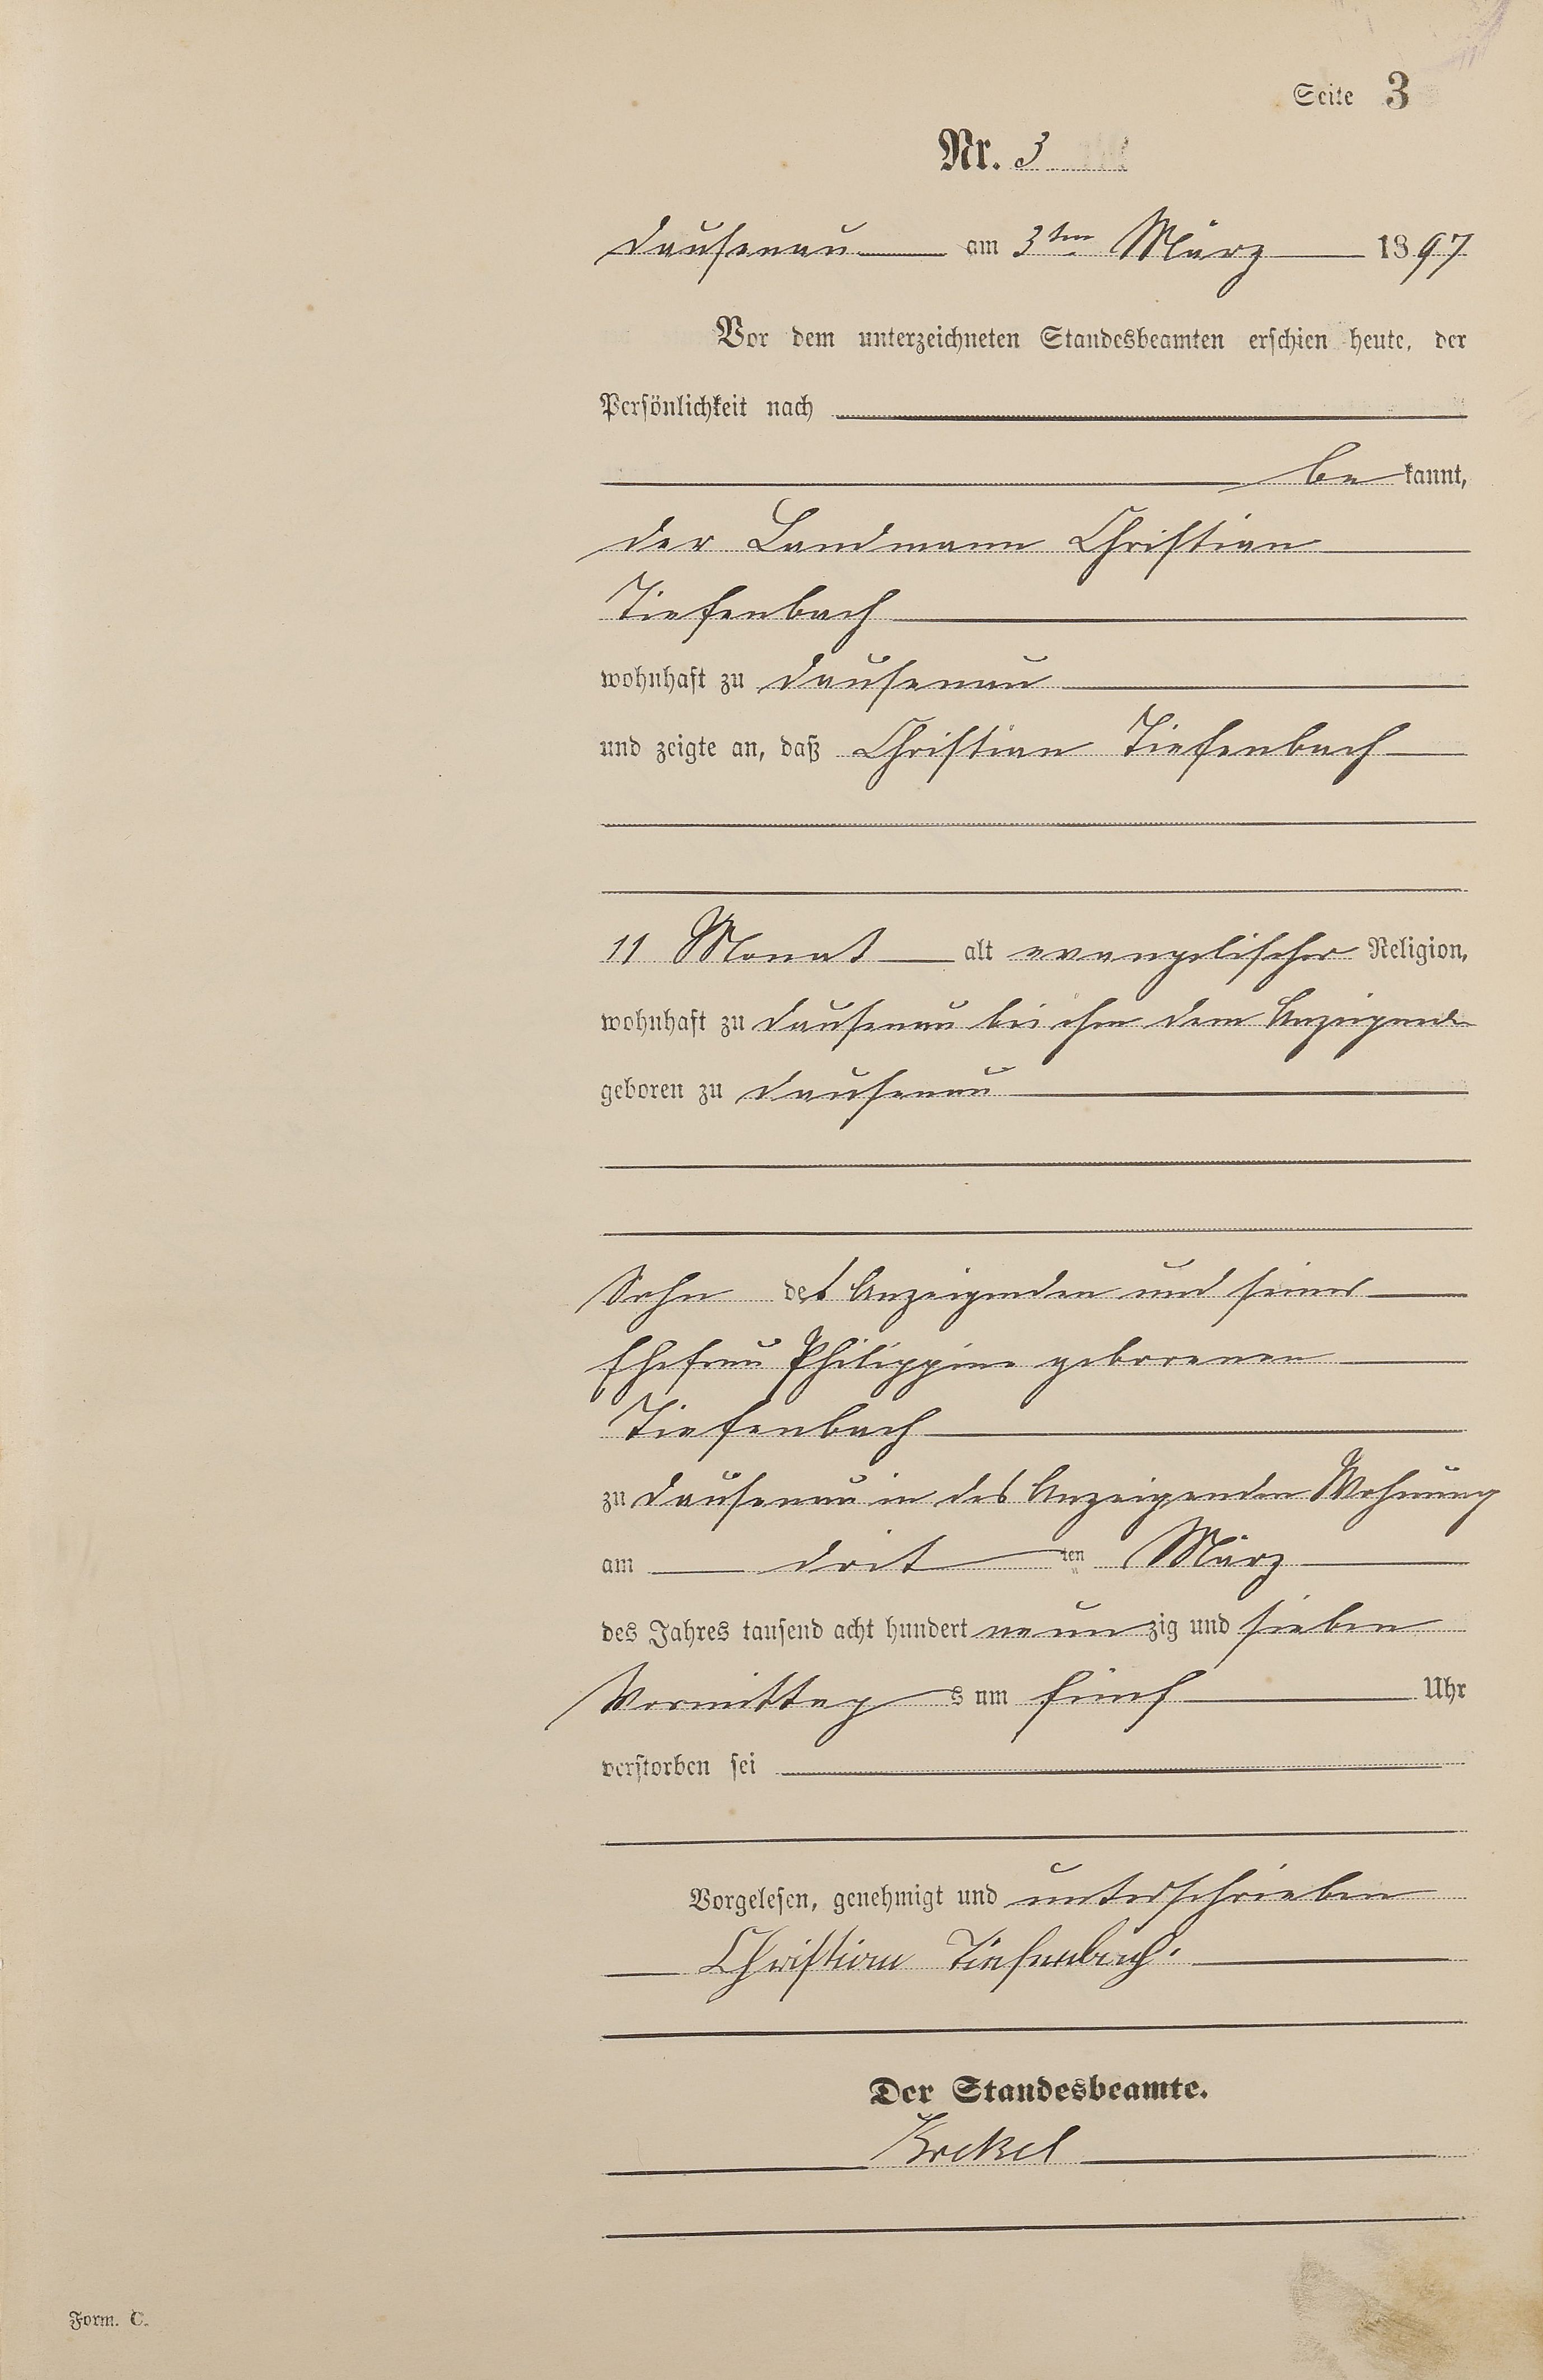 Seite 3
Nr. 3
Dausenau am 3ten März 1897
Vor dem unterzeichneten Standesbeamten erschien heute, der
Persönlichkeit nach
be kannt,
der Landmann Christian
Tiefenbach
wohnhaft zu Dausenau
und zeigte an, daß Christian Tiefenbach
11 Monat alt evangelischer Religion,
wohnhaft zu Dausenau bei ihm dem Anzeigende
geboren zu Dausenau
Sohn des Anzeigenden und seiner
Ehefrau Philippine geborenen
Tiefenbach
zu Dausenau in des Anzeigenden Wohnung
am drit ten März
des Jahres tausend acht hundert neun zig und sieben
Vormittag s um fünf Uhr
verstorben sei
Vorgelesen, genehmigt und unterschrieben
Christian Tiefenbach.
Der Standesbeamte.
Krekel
Form. C.